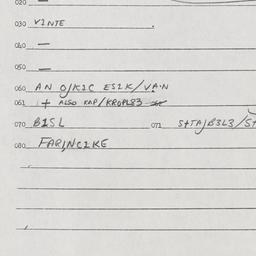 020 —
030 VINTE
040 —
050 —
060 AN O/KIC ESIK/VA.N
061 + ALSO KAP/KROPL83
070 BISL 071 S+TAJB3L3/S+
080 FARJNCIKE